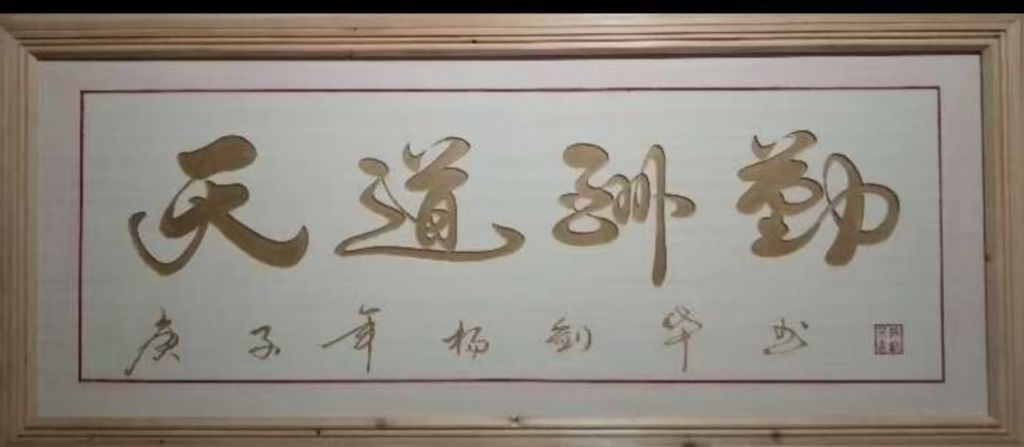 天道酬勤
庚子年杨剑华书